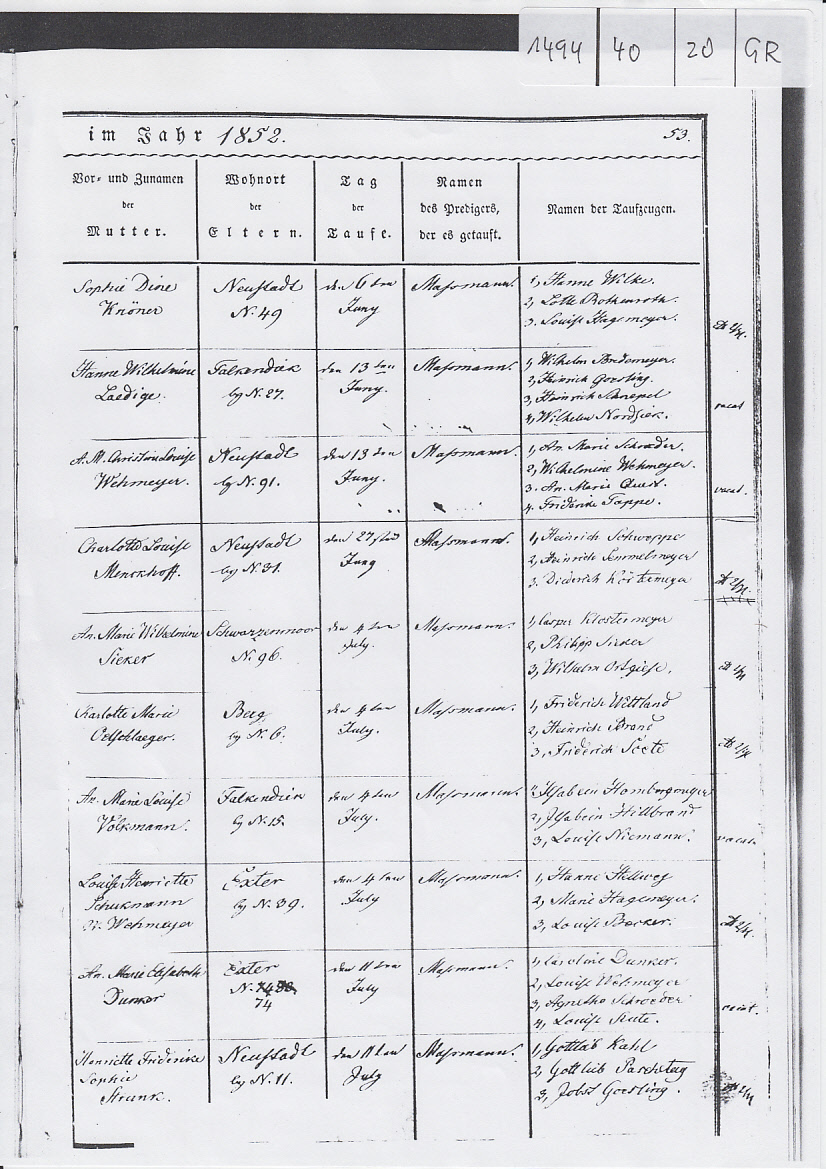 1494 40 20 GR
im Jahr 1852. 53.
Vor- und Zunamen der Mutter.
Wohnort der Eltern.
Tag der Taufe.
Namen des Predigers, der es getauft.
Namen der Taufzeugen.
Sophie Dine Neustadt den 6ten Massmann. 1, Hanne Wilke.
Knöner N. 49 Juny 2, Lotte Rothenroth.
3. Louise Hagemeyer.
Hanne Wilhelmine Falkendiek den 13ten Massmann. 1, Wilhelm Bredemeyer.
Laedige. by N. 27. Juny. 2, Heinrich Goesling.
3, Heinrich Schnepel
4, Wilhelm Nordsiek. vacat
A. M. Christine Louise Neustadt den 13ten Massmann. 1, An. Marie Schroeder.
Wehmeyer. by N. 91. Juny. 2, Wilhelmine Wehmeyer.
3. An. Marie Quest. vacat.
4. Friderike Tappe.
Charlotte Louise Neustadt den 27sten Massmann. 1, Heinrich Schweppe
Menckhoff. by N. 31. Juny 2, Heinrich Semmelmeyer
3. Diederich
An. Marie Wilhelmine Schwarzenmoor den 4ten Massmann. 1, Casper Klostermeyer
Sieker N. 96. July. 2, Philipp Sieker
3, Wilhelm Ortgiese.
Charlotte Marie Berg den 4ten Massmann. 1, Friderich Wittland
Oelschlaeger. by N. 6. July. 2, Heinrich Brand
3, Friderich Soete
An. Marie Louise Falkendiek den 4ten Massmann. 1, Ilsabein
Volkmann. by N. 15. July. 2, Ilsabein Hillbrand
3, Louise Niemann. vacat.
Louise Henriette Exter den 4ten Massmann. 1, Hanne Hellweg
Schuckmann by N. 39. July 2, Marie Hagemeyer.
Wehmeyer 3, Louise Becker.
An. Marie Elisabeth Exter den 11ten Massmann. 1, Caroline Dunker.
Dunker N. 74 July 2, Louise Wehmeyer
3, Agnethe Schroeder
4, Louise
Henriette Friderike Neustadt den 11ten Massmann. 1, Gottlieb Kahl
Sophie by N. 11. July 2, Gottlieb
Strunk. 3, Jobst Goesling.